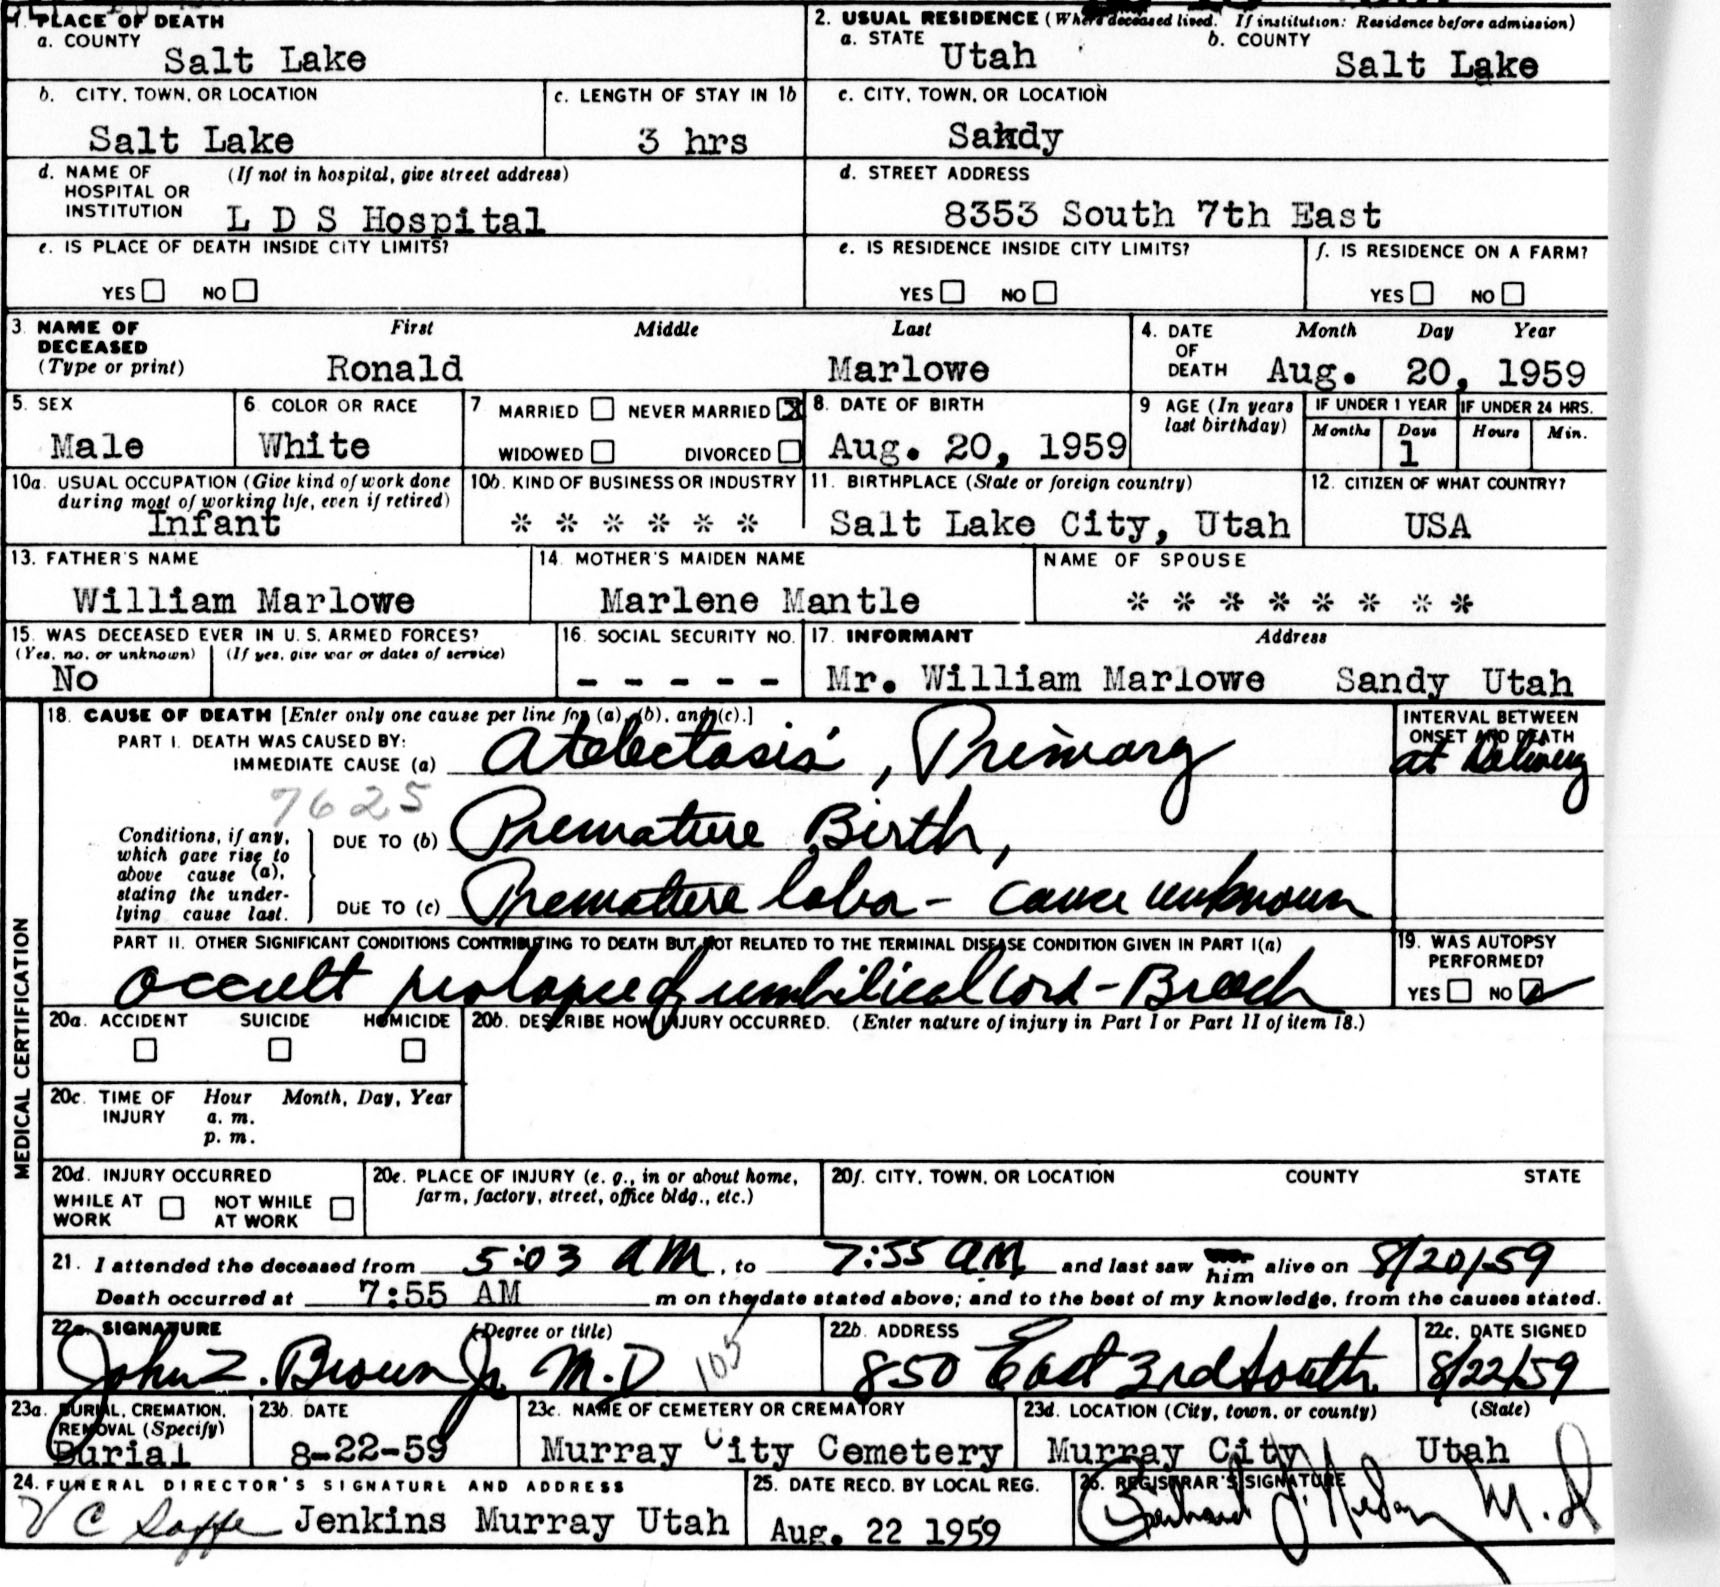 1. PLACE OF DEATH
a. COUNTY
Salt Lake
2. USUAL RESIDENCE (Where deceased lived. If institution: Residence before admission)
a. STATE
Utah
b. COUNTY
Salt Lake
b. CITY, TOWN, OR LOCATION
Salt Lake
c. LENGTH OF STAY IN 1b
3 hrs
c. CITY, TOWN, OR LOCATION
Sandy
d. NAME OF HOSPITAL OR INSTITUTION (If not in hospital, give street address)
L D S Hospital
d. STREET ADDRESS
8353 South 7th East
e. IS PLACE OF DEATH INSIDE CITY LIMITS?
YES NO
e. IS RESIDENCE INSIDE CITY LIMITS?
YES NO
f. IS RESIDENCE ON A FARM?
YES NO
3. NAME OF DECEASED (Type or print)
First Middle Last
Ronald Marlowe
4. DATE OF DEATH
Month Day Year
Aug. 20, 1959
5. SEX
Male
6. COLOR OR RACE
White
7 MARRIED NEVER MARRIED X
WIDOWED DIVORCED
8. DATE OF BIRTH
Aug. 20, 1959
9 AGE (In years last birthday)
IF UNDER 1 YEAR
Months Days
1
IF UNDER 24 HRS.
Hours Min.
10a. USUAL OCCUPATION (Give kind of work done during most of working life, even if retired)
Infant
10b. KIND OF BUSINESS OR INDUSTRY
* * * * * *
11. BIRTHPLACE (State or foreign country)
Salt Lake City, Utah
12. CITIZEN OF WHAT COUNTRY?
USA
13. FATHER'S NAME
William Marlowe
14. MOTHER'S MAIDEN NAME
Marlene Mantle
NAME OF SPOUSE
* * * * * * * *
15. WAS DECEASED EVER IN U. S. ARMED FORCES?
(Yes, no, or unknown) (If yes, give war or dates of service)
No
16. SOCIAL SECURITY NO.
- - - - -
17. INFORMANT Address
Mr. William Marlowe Sandy Utah
MEDICAL CERTIFICATION
18. CAUSE OF DEATH [Enter only one cause per line for (a), (b), and (c).]
PART I. DEATH WAS CAUSED BY:
IMMEDIATE CAUSE (a) Atelectasis, Primary
INTERVAL BETWEEN ONSET AND DEATH
at Delivery
7625
Conditions, if any, which gave rise to above cause (a), stating the underlying cause last.
DUE TO (b) Premature Birth,
DUE TO (c) Premature labor - cause unknown
PART II. OTHER SIGNIFICANT CONDITIONS CONTRIBUTING TO DEATH BUT NOT RELATED TO THE TERMINAL DISEASE CONDITION GIVEN IN PART I(a)
occult prolapse of umbilical cord - Breech
19. WAS AUTOPSY PERFORMED?
YES NO ✓
20a. ACCIDENT SUICIDE HOMICIDE
20b. DESCRIBE HOW INJURY OCCURRED. (Enter nature of injury in Part I or Part II of item 18.)
20c. TIME OF INJURY
Hour Month, Day, Year
a. m.
p. m.
20d. INJURY OCCURRED
WHILE AT WORK NOT WHILE AT WORK
20e. PLACE OF INJURY (e. g., in or about home, farm, factory, street, office bldg., etc.)
20f. CITY, TOWN, OR LOCATION COUNTY STATE
21. I attended the deceased from 5:03 AM, to 7:55 AM and last saw him alive on 8/20/59
Death occurred at 7:55 AM m on the date stated above; and to the best of my knowledge, from the causes stated.
22a. SIGNATURE (Degree or title)
John Z. Brown Jr. M.D
105
22b. ADDRESS
850 East 3rd South
22c. DATE SIGNED
8/22/59
23a. BURIAL, CREMATION, REMOVAL (Specify)
Burial
23b. DATE
8-22-59
23c. NAME OF CEMETERY OR CREMATORY
Murray City Cemetery
23d. LOCATION (City, town, or county) (State)
Murray City Utah
24. FUNERAL DIRECTOR'S SIGNATURE AND ADDRESS
V C Jenkins Murray Utah
25. DATE RECD. BY LOCAL REG.
Aug. 22 1959
26. REGISTRAR'S SIGNATURE
M. D